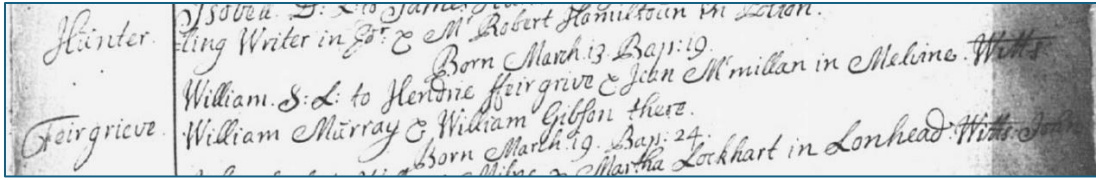 Isobell. S: L: to James
Hunter. ting Writer in Edr: & Mr Robert Hamiltoun in
Born March. 13. Bap: 19.
William. S: L: to Hendrie ffeirgrive & Jean Mcmillan in Melvine. Witts
Feirgrieve. William Murray & William Gibson there.
Born March. 19. Bap: 24.
Milne & Martha Lockhart in Lonhead. Witts. John